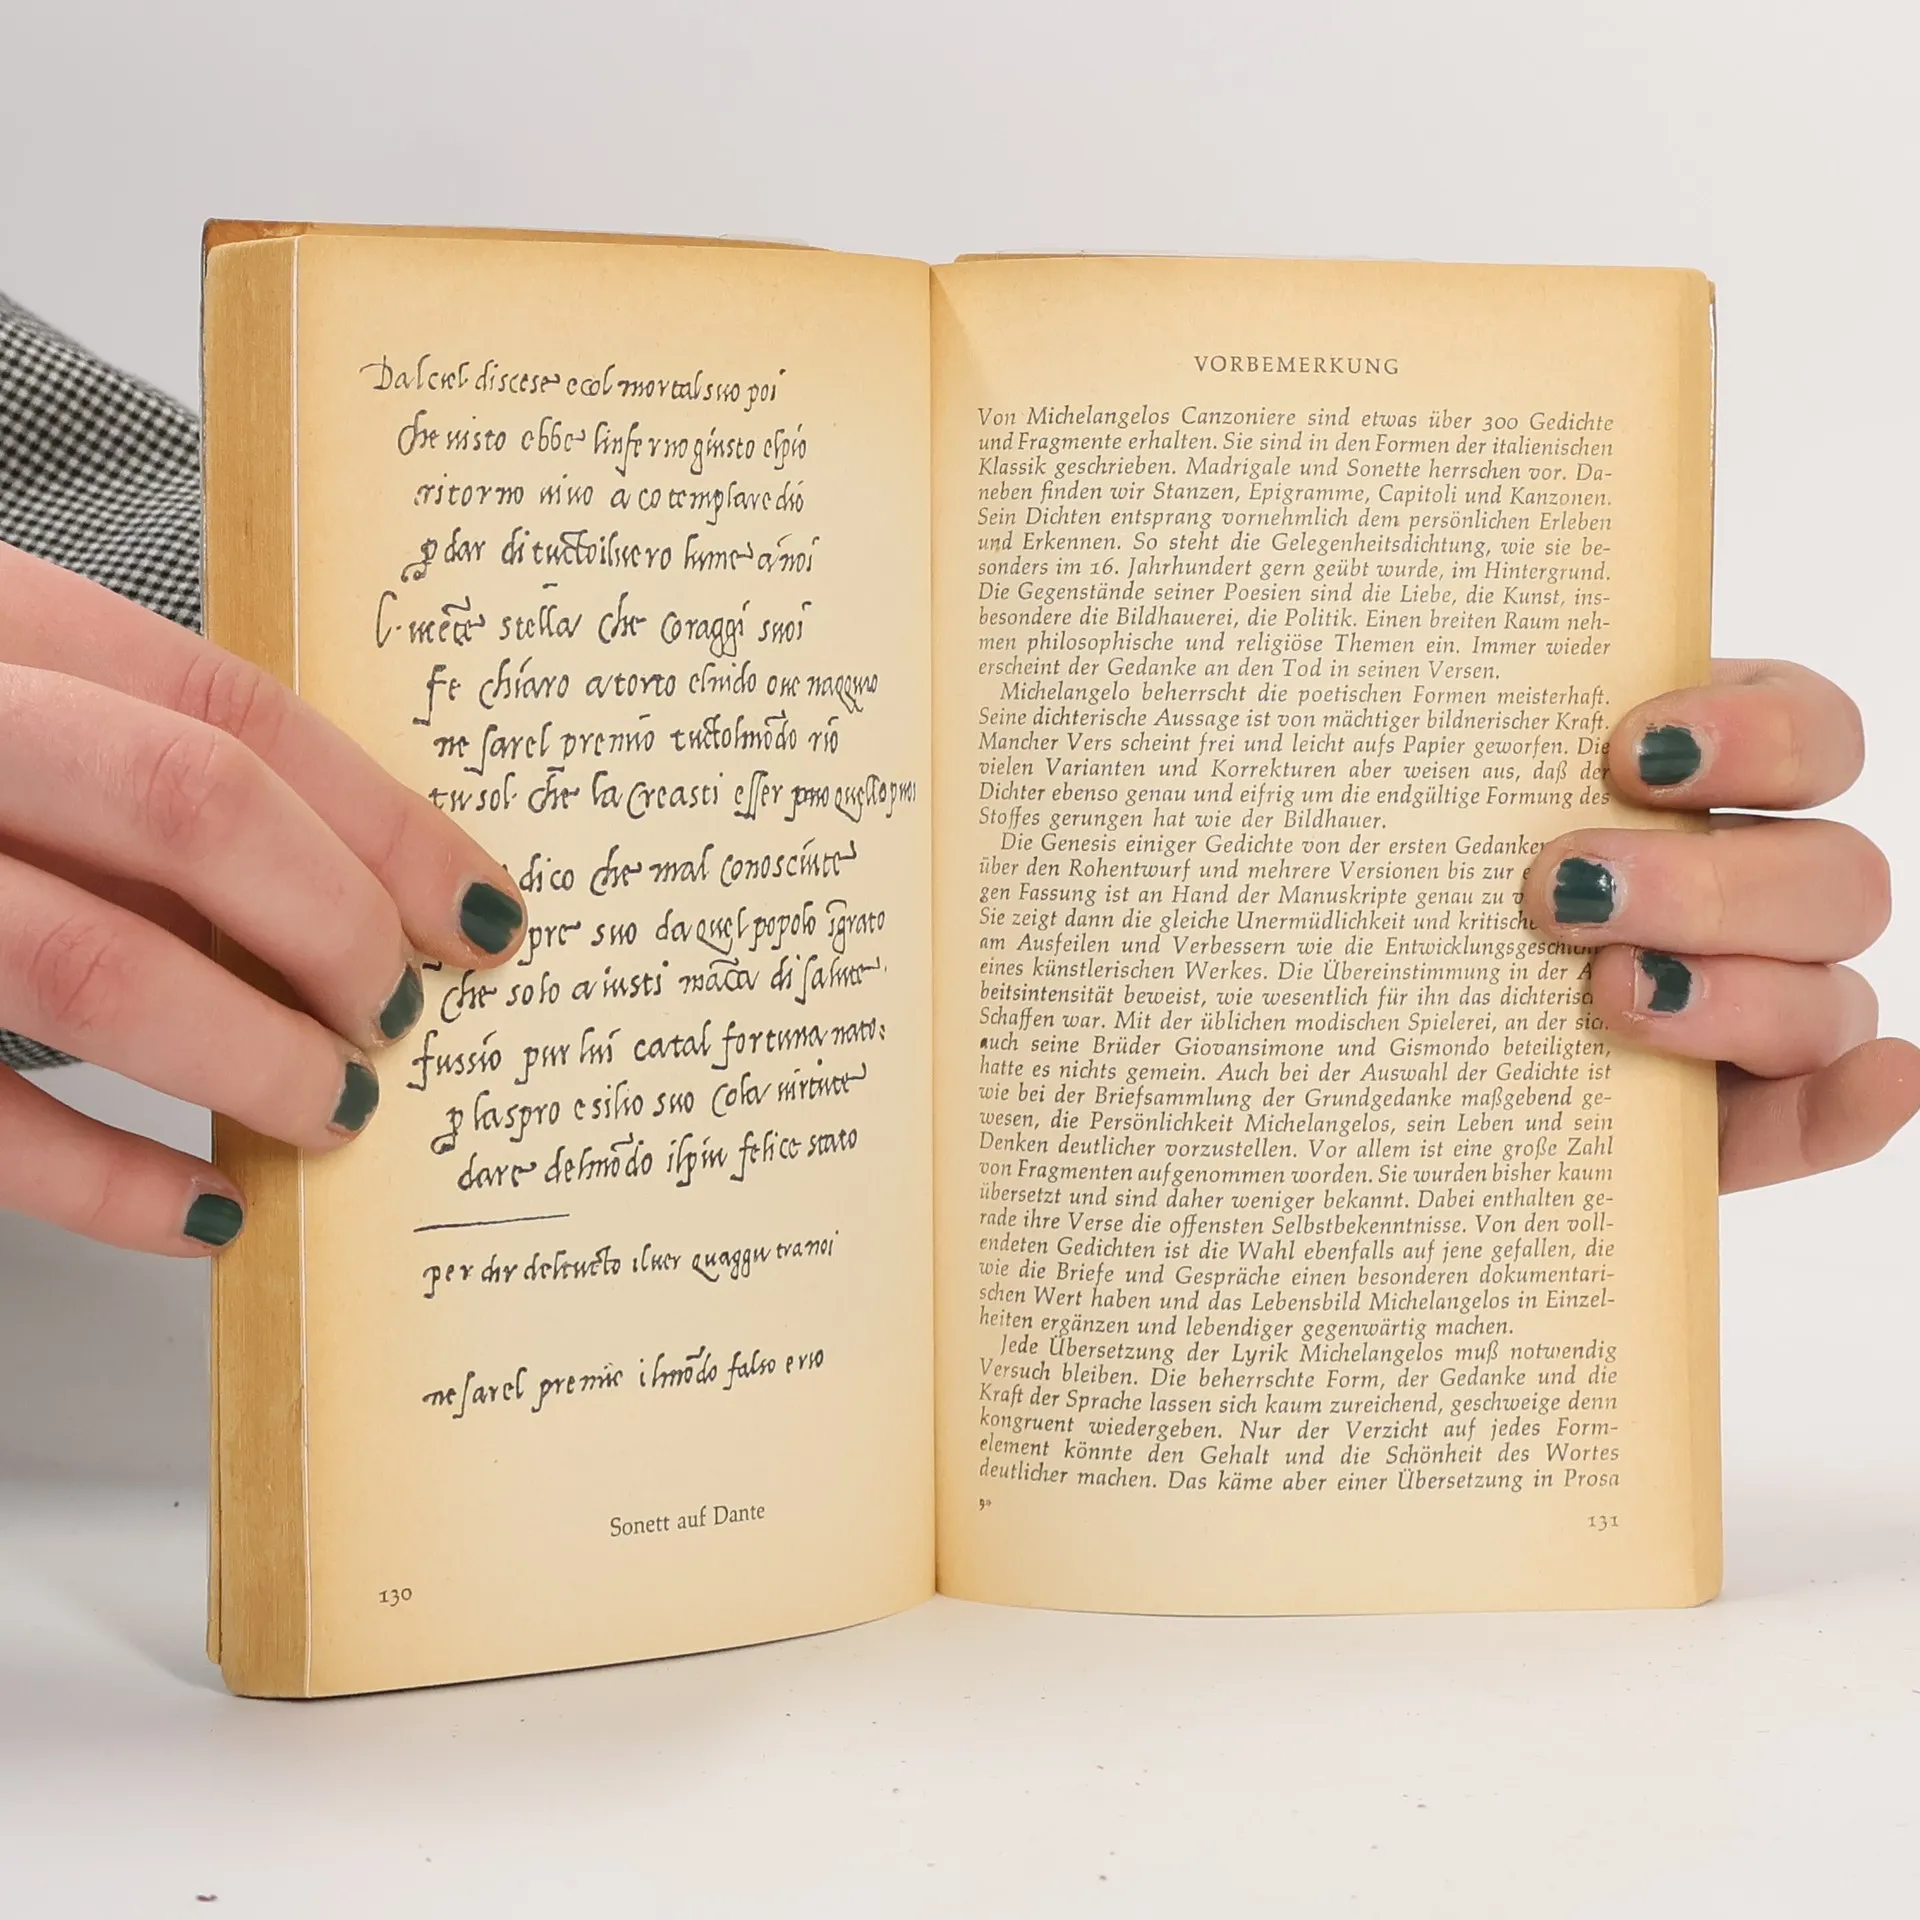 Dalciel discese e col mortal suo poi
che uisto ebbe linferno giusto elpio
ritorno uiuo a cotemplare dio
p dar di tucto iluero lume a noi
l. ucēte stella che coraggi suoi
fe chiaro a torto elnido oue nacqu
ne sarel premio tuctolmōdo rio
tu sol che la creasti esser quello puoi
dico che mal conosciute
pre suo da quel popolo īgrato
che solo a iusti māca di salute.
fussio pur lui catal fortuna nato:
p laspro esilio suo cola uirtute
dare delmōdo ilpiu felice stato
per dir deltucto iluer quaggiu tra noi
ne sarel premio ilmōdo falso e rio
Sonett auf Dante
130
VORBEMERKUNG
Von Michelangelos Canzoniere sind etwas über 300 Gedichte
und Fragmente erhalten. Sie sind in den Formen der italienischen
Klassik geschrieben. Madrigale und Sonette herrschen vor. Da-
neben finden wir Stanzen, Epigramme, Capitoli und Kanzonen.
Sein Dichten entsprang vornehmlich dem persönlichen Erleben
und Erkennen. So steht die Gelegenheitsdichtung, wie sie be-
sonders im 16. Jahrhundert gern geübt wurde, im Hintergrund.
Die Gegenstände seiner Poesien sind die Liebe, die Kunst, ins-
besondere die Bildhauerei, die Politik. Einen breiten Raum neh-
men philosophische und religiöse Themen ein. Immer wieder
erscheint der Gedanke an den Tod in seinen Versen.
Michelangelo beherrscht die poetischen Formen meisterhaft.
Seine dichterische Aussage ist von mächtiger bildnerischer Kraft.
Mancher Vers scheint frei und leicht aufs Papier geworfen. Die
vielen Varianten und Korrekturen aber weisen aus, daß der
Dichter ebenso genau und eifrig um die endgültige Formung des
Stoffes gerungen hat wie der Bildhauer.
Die Genesis einiger Gedichte von der ersten Gedanken
über den Rohentwurf und mehrere Versionen bis zur
gen Fassung ist an Hand der Manuskripte genau zu
Sie zeigt dann die gleiche Unermüdlichkeit und kritische
am Ausfeilen und Verbessern wie die Entwicklungsgeschichte
eines künstlerischen Werkes. Die Übereinstimmung in der A
beitsintensität beweist, wie wesentlich für ihn das dichterisc
Schaffen war. Mit der üblichen modischen Spielerei, an der sich
auch seine Brüder Giovansimone und Gismondo beteiligten,
hatte es nichts gemein. Auch bei der Auswahl der Gedichte ist
wie bei der Briefsammlung der Grundgedanke maßgebend ge-
wesen, die Persönlichkeit Michelangelos, sein Leben und sein
Denken deutlicher vorzustellen. Vor allem ist eine große Zahl
von Fragmenten aufgenommen worden. Sie wurden bisher kaum
übersetzt und sind daher weniger bekannt. Dabei enthalten ge-
rade ihre Verse die offensten Selbstbekenntnisse. Von den voll-
endeten Gedichten ist die Wahl ebenfalls auf jene gefallen, die
wie die Briefe und Gespräche einen besonderen dokumentari-
schen Wert haben und das Lebensbild Michelangelos in Einzel-
heiten ergänzen und lebendiger gegenwärtig machen.
Jede Übersetzung der Lyrik Michelangelos muß notwendig
Versuch bleiben. Die beherrschte Form, der Gedanke und die
Kraft der Sprache lassen sich kaum zureichend, geschweige denn
kongruent wiedergeben. Nur der Verzicht auf jedes Form-
element könnte den Gehalt und die Schönheit des Wortes
deutlicher machen. Das käme aber einer Übersetzung in Prosa
9*
131